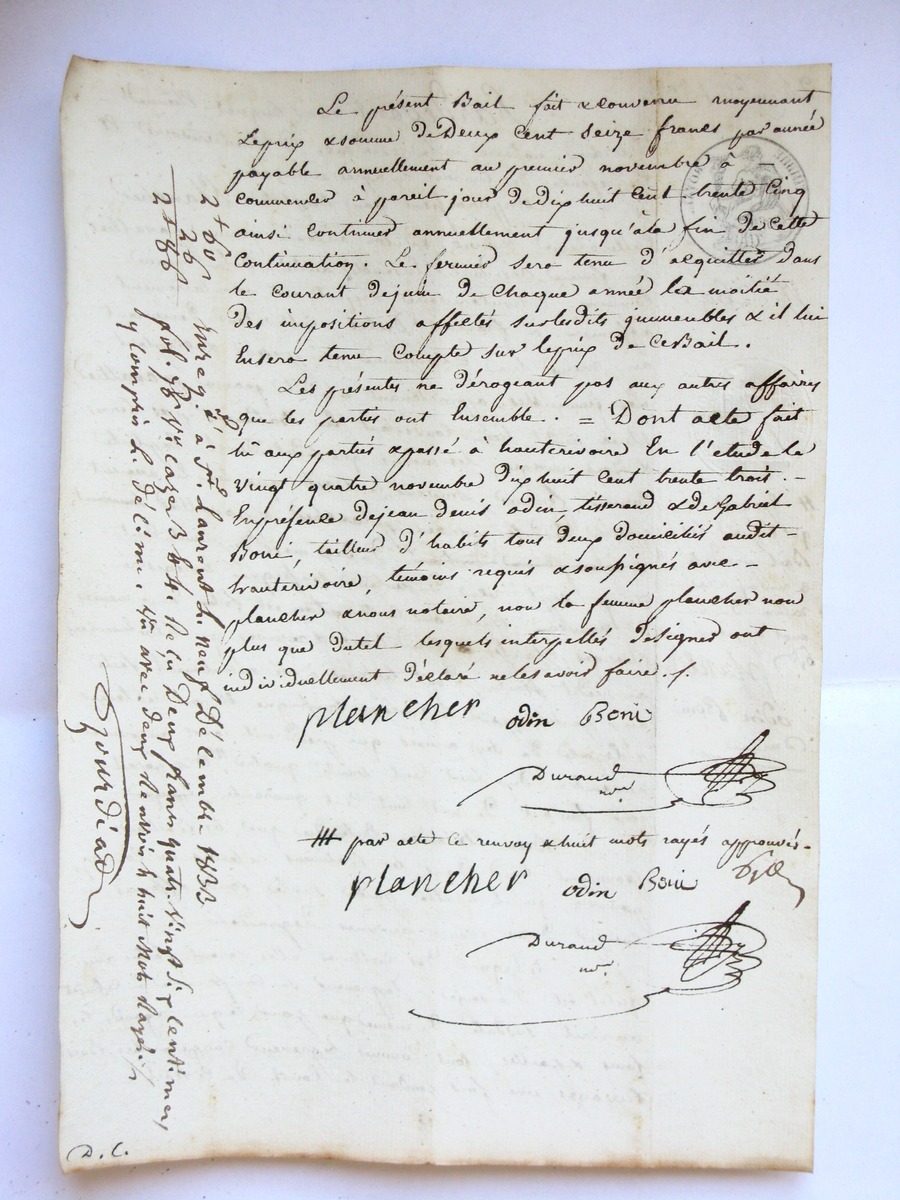 Le présent Bail fait & convenu moyennant
Leprix & somme deDeux Cent Seize francs par année
payable annuellement au premier novembre à —
commencer à pareil jour de dix huit cent trente cinq
ainsi continuer annuellement jusqu'àla fin de Cette
Continuation. Le fermier sera tenu d'acquitter dans
le courant dejuin de chaque année la moitié
des impositions affectés surlesdits immeubles & il lui
Ensera tenu Compte sur leprix de CeBail.
Les présentes ne dérogeant pas aux autres affaires
que les parties ont Ensemble. = Dont acte fait
lu aux partiés & passé à hauterivoire En l'etude le
Vingt quatre novembre dix huit Cent trente trois. —
Enprésence dejean denis odin, tisserand & de Gabriel
Boni, tailleur d'habits tous deux domiciliés audit —
hauterivoire, témoins requis & soussignés avec —
plancher & nous notaire, non la femme plancher non
plus que dutel lesquels interpellés designer ont
individuellement déclaré nelesavoir faire. /.
plancher odin Boni
Durand
nre
par acte Ce renvoy & huit mots rayés approuvés. —
plancher odin Boni
Durand
nre
2 + 60
26
2 + 86
Enreg. à St. Laurent le neuf Décembre 1833
fol. 98 Vo. cazes 3 & 4. Reçu Deux francs quatre Vingt Six Centimes
y Compris le décime avec deux renvois & huit Mots Rayés. /.
D. C.